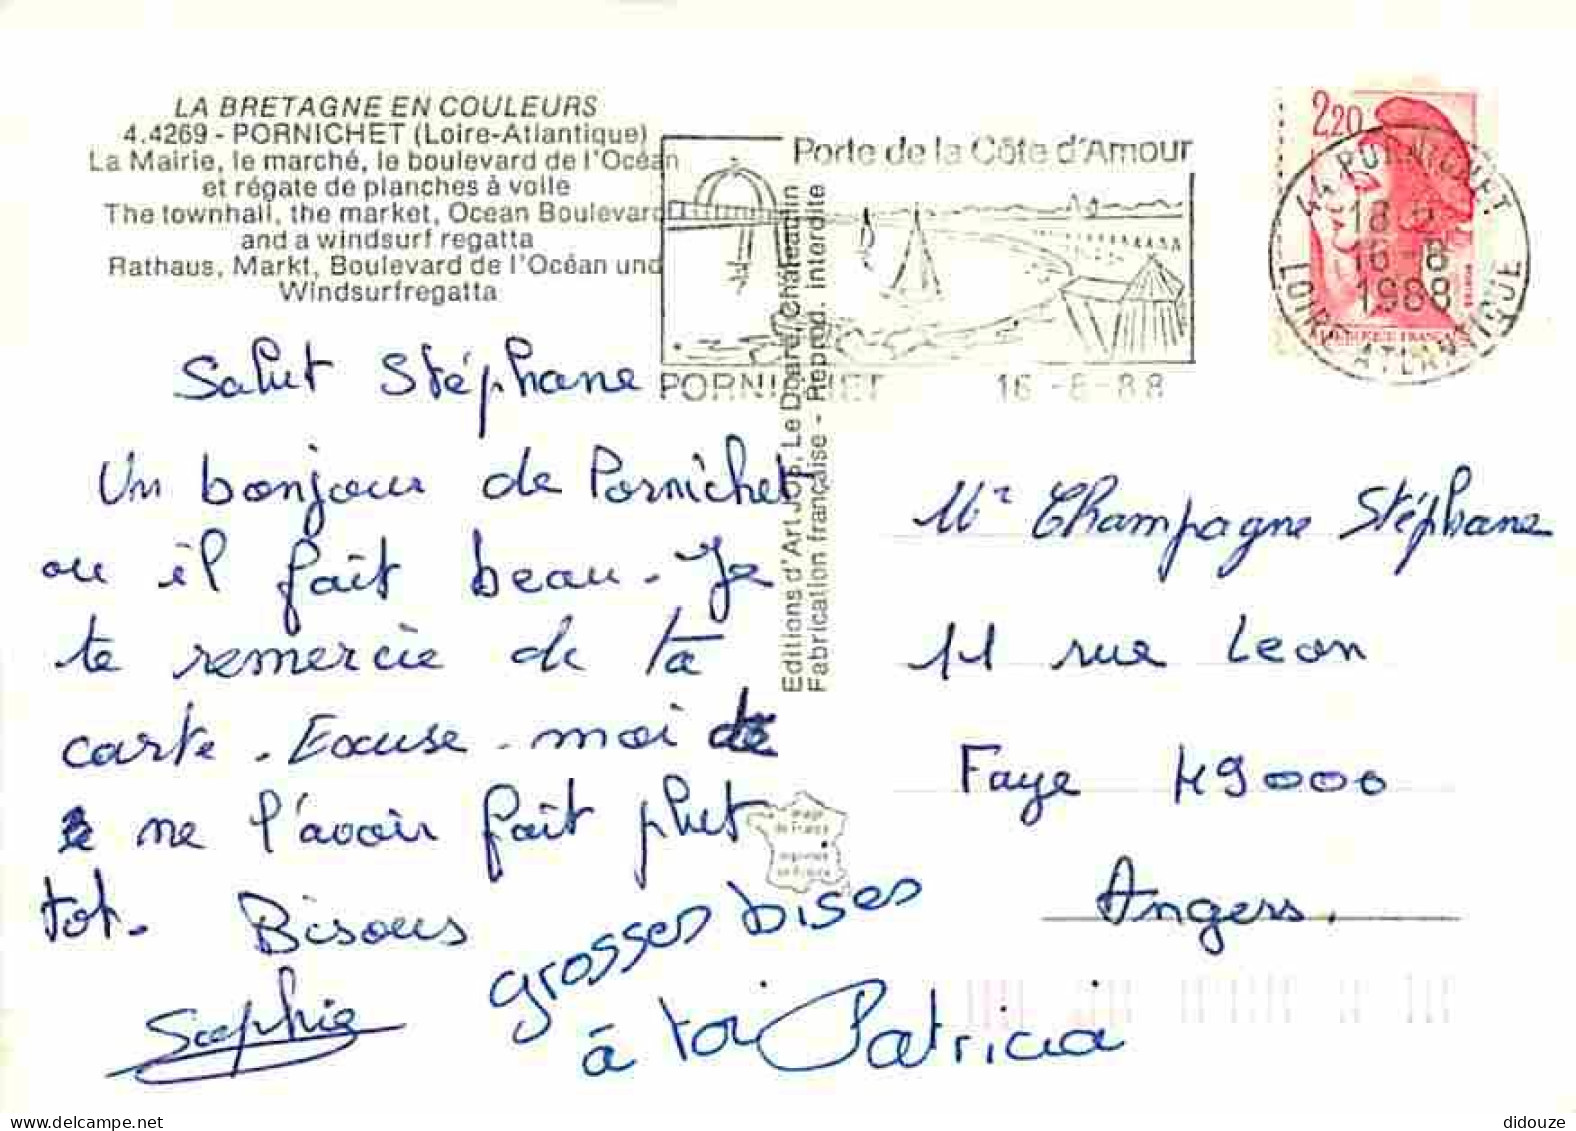 LA BRETAGNE EN COULEURS
4.4269 - PORNICHET (Loire-Atlantique)
La Mairie, le marché, le boulevard de l'Océan
et régate de planches à voile
The townhall, the market, Ocean Boulevard
and a windsurf regatta
Rathaus, Markt, Boulevard de l'Océan und
Windsurfregatta
Porte de la Côte d'Amour
PORNICHET 16-8-88
2,20
44 PORNICHET
18 H
16-8
1988
LOIRE ATLANTIQUE
REPUBLIQUE FRANÇAISE
Salut Stéphane
Un bonjour de Pornichet
ou il fait beau. Je
te remercie de ta
carte. Excuse-moi de
ne l'avoir fait plut
tot. Bisous
Sophie
grosses bises
à toi Patricia
Editions d'Art JOS, Le Doaré, Châteaulin
Fabrication française - Reprod. interdite
image
de France
imprimée
en France
Mr Champagne Stéphane
11 rue Leon
Faye 49000
Angers.
www.delcampe.net
didouze